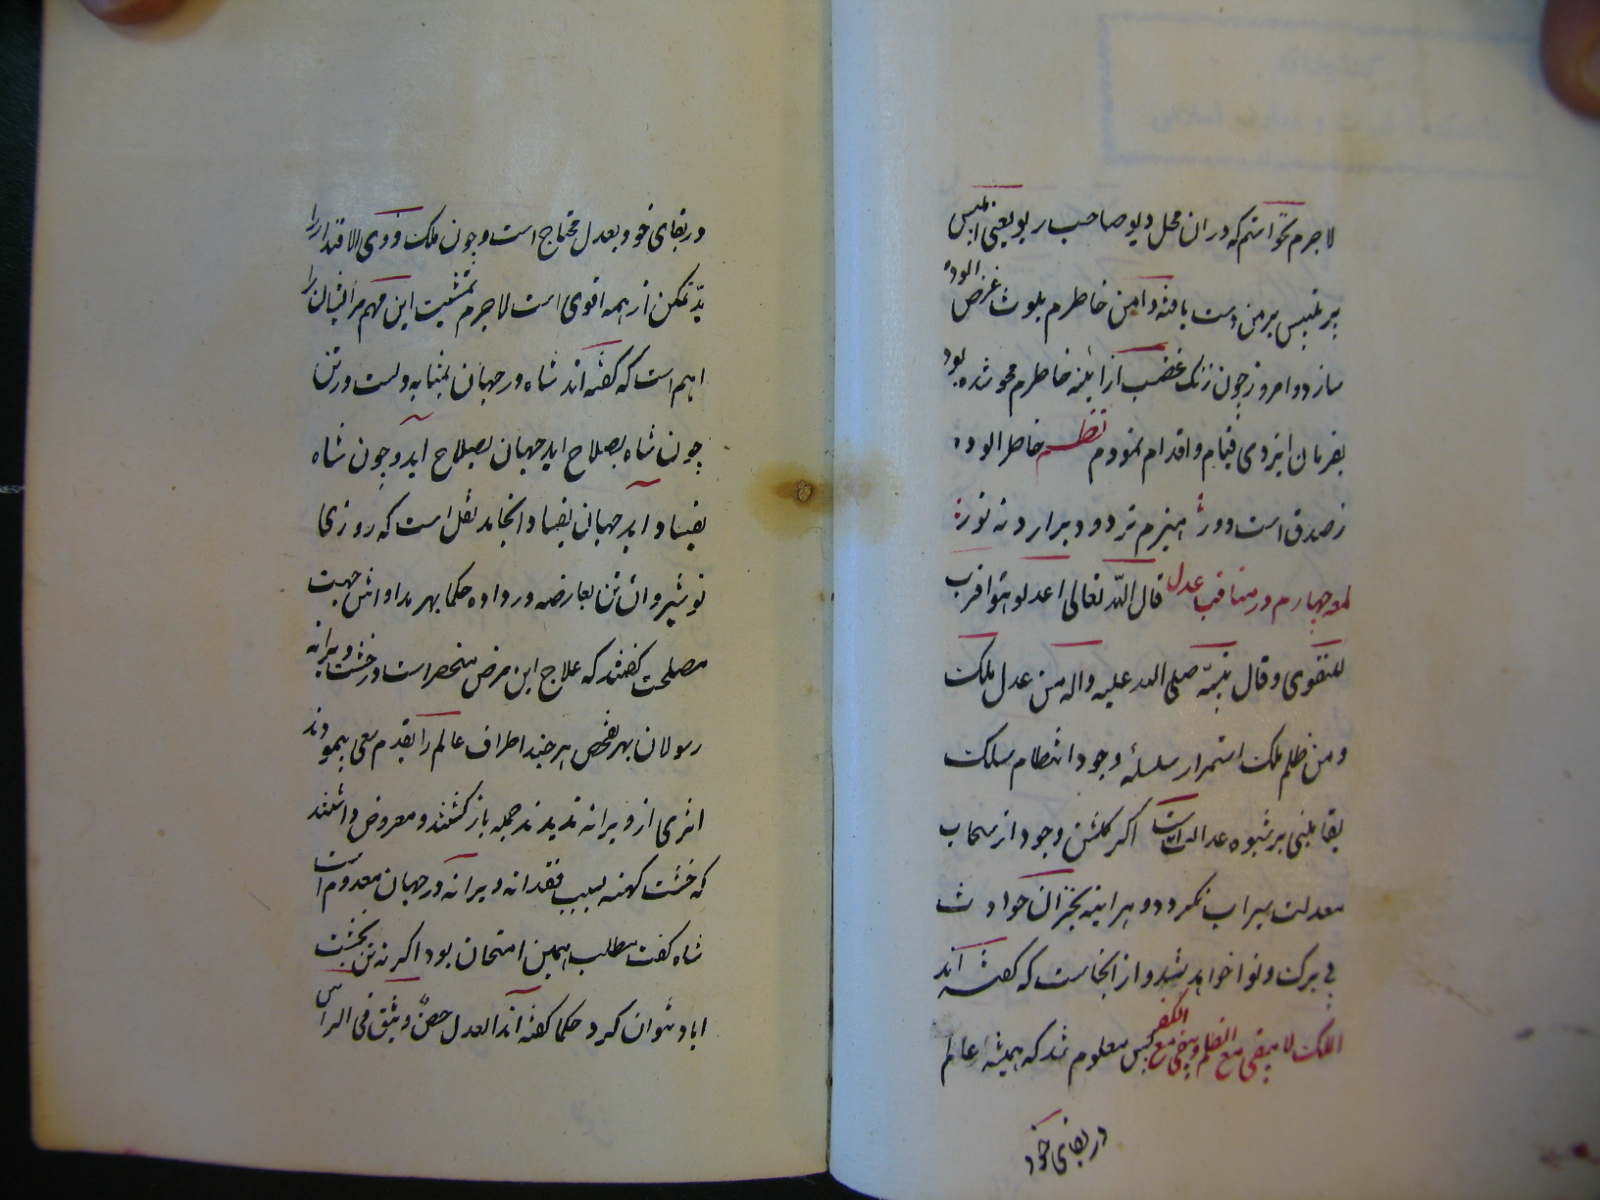 لاجرم نخواستم که در ان محل دیو صاحب ریو یعنی ابلیس
پر تلبیس بر من دست یافته دامن خاطرم بلوث غرض الوده
سازد و امروز چون زنک غضب از اینه خاطرم محو شده بود
بفرمان ایزدی قیام و اقدام نمودم نظم خاطر الوده
ز صدق است دور هیزم تر دود برارد نه نور
لمعه چهارم در مناقب عدل قال الله تعالی اعدلو هو اقرب
للتقوی و قال نبیه صلی الله علیه و اله من عدل ملک
و من ظلم هلک استمرار سلسله وجود انتظام سلک
بقا مبنی بر شیوه عدالت است اکر کلشن وجود از سحاب
معدلت سیراب نکردد هر اینه بخزان حوادث
بی برک و نوا خواهد شد و از انجاست که کفته اند
الملک لا یبقی مع الظلم و یبقی مع الکفر پس معلوم شد که همیشه عالم
در بقای خود
در بقای خود بعدل محتاج است و چون ملک ذوی الاقتدار را
ید تمکن از همه اقوی است لاجرم تمشیت این مهم مر ایشان را
اهم است که کفته اند شاه در جهان بمثابه دلست در تن
چون شاه بصلاح اید جهان بصلاح اید و چون شاه
بفساد اید جهان بفساد انجامد نقل است که روزی
نوشیروان تن بعارضه در داده حکما بهر مداواش جهت
مصلحت کفتند که علاج این مرض منحصر است در خشت ویرانه
رسولان بهر تفحص هر چند اطراف عالم را بقدم سعی پیمودند
اثری از ویرانه ندیدند جمله باز کشتند و معروض داشتند
که خشت کهنه بسبب فقدانه ویرانه در جهان معدوم است
شاه کفت مطلب همین امتحان بود اکر نه تن بخشت
اباد نتوان کرد حکما کفته اند العدل حصن وثیق فی الراس